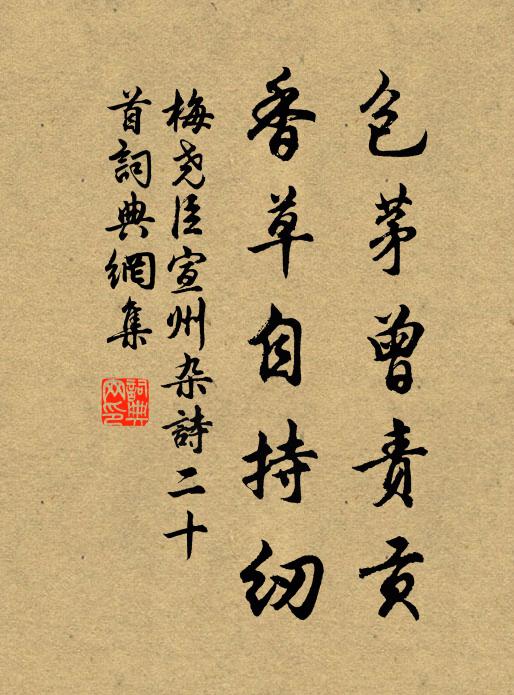 包茅曾责贡
香草自持纫
梅尧臣宣州杂诗二十
首词典網集
詞典
网印